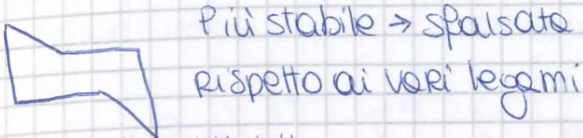 Più stabile → sfalsata
Rispetto ai vari legami